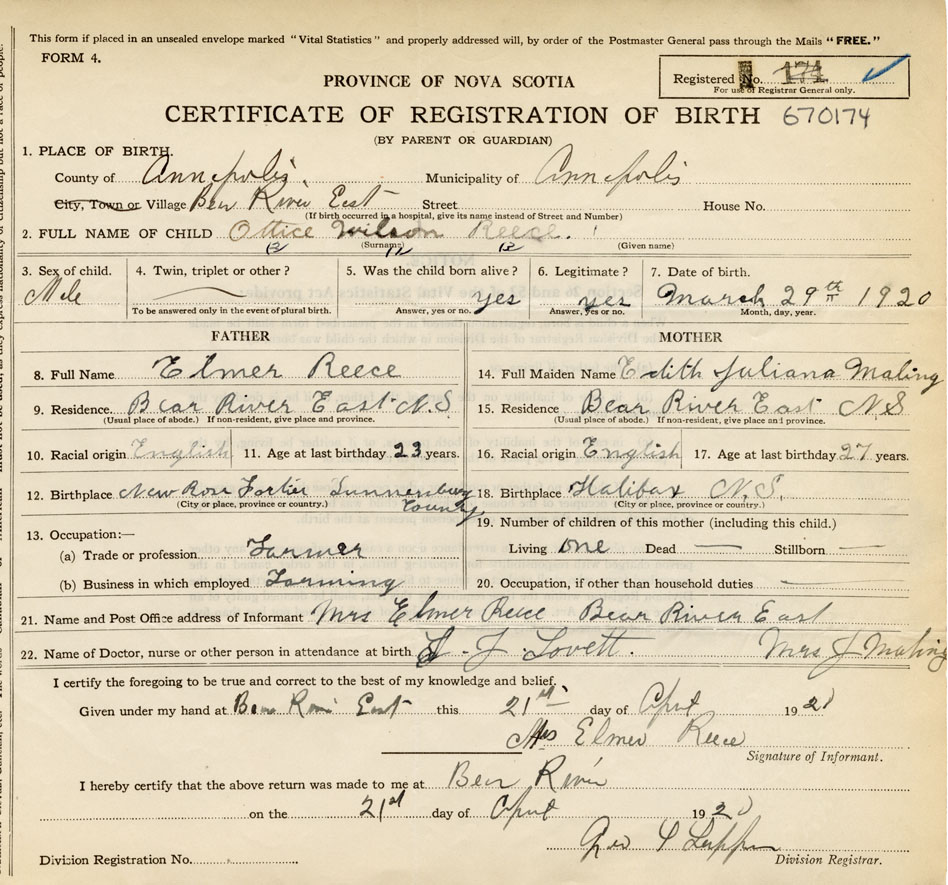 This form if placed in an unsealed envelope marked "Vital Statistics" and properly addressed will, by order of the Postmaster General pass through the Mails "FREE."
FORM 4.
Registered No. 174
For use of Registrar General only.
PROVINCE OF NOVA SCOTIA
CERTIFICATE OF REGISTRATION OF BIRTH 670174
(BY PARENT OR GUARDIAN)
1. PLACE OF BIRTH.
County of Annapolis Municipality of Annapolis
City, Town or Village Bear River East Street House No.
(If birth occurred in a hospital, give its name instead of Street and Number)
2. FULL NAME OF CHILD Ottice Wilson Reece.
(Surname) (Given name)
13 12 13
3. Sex of child. 4. Twin, triplet or other? 5. Was the child born alive? 6. Legitimate? 7. Date of birth.
Male yes yes March 29th 1920
To be answered only in the event of plural birth. Answer, yes or no. Answer, yes or no. Month, day, year.
FATHER MOTHER
8. Full Name Elmer Reece 14. Full Maiden Name Edith Juliana Maling
9. Residence. Bear River East N.S 15. Residence Bear River East N S
(Usual place of abode.) If non-resident, give place and province. (Usual place of abode.) If non-resident, give place and province.
10. Racial origin English 11. Age at last birthday 23 years. 16. Racial origin English 17. Age at last birthday 27 years.
12. Birthplace New Ross Lunenburg County 18. Birthplace Halifax N.S.
(City or place, province or country.) (City or place, province or country.)
13. Occupation:— 19. Number of children of this mother (including this child.)
(a) Trade or profession. Farmer Living one Dead — Stillborn —
(b) Business in which employed Farming 20. Occupation, if other than household duties —
21. Name and Post Office address of Informant Mrs Elmer Reece Bear River East
22. Name of Doctor, nurse or other person in attendance at birth J Lovett. Mrs J Maling
I certify the foregoing to be true and correct to the best of my knowledge and belief.
Given under my hand at Bear River East this 21st day of April 19 20
Mrs Elmer Reece
Signature of Informant.
I hereby certify that the above return was made to me at Bear River
on the 21st day of April 19 20
Geo
Division Registration No. Division Registrar.